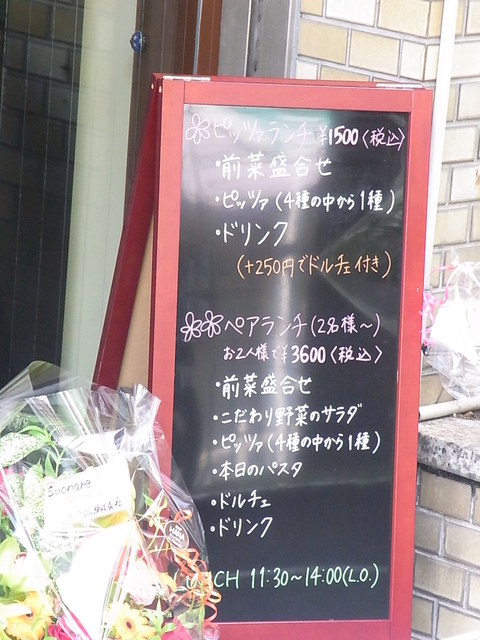 ピッツァランチ ¥1500〈税込〉
・前菜盛合せ
・ピッツァ(4種の中から1種)
・ドリンク
(+250円でドルチェ付き)
ペアランチ(2名様~)
お2人様で¥3600〈税込〉
・前菜盛合せ
・こだわり野菜のサラダ
・ピッツァ(4種の中から1種)
・本日のパスタ
・ドルチェ
・ドリンク
LUNCH 11:30~14:00(L.O.)
Suonare